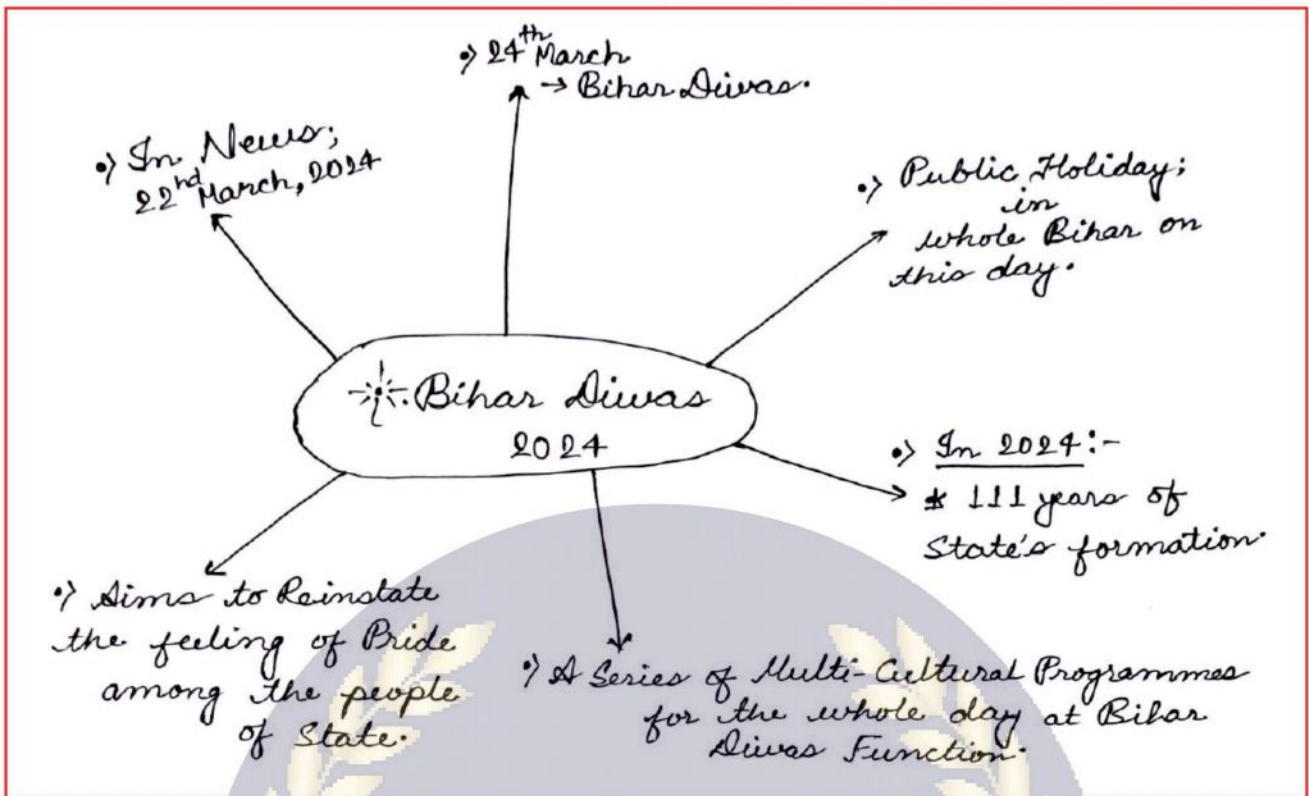 •) 24th March
→ Bihar Diwas.
•) In News;
22nd March, 2024
•) Public Holiday;
in
whole Bihar on
this day.
Bihar Diwas
2024
•) In 2024:-
* 111 years of
State's formation.
•) Aims to Reinstate
the feeling of Pride
among the people
of State.
•) A Series of Multi-Cultural Programmes
for the whole day at Bihar
Diwas Function.